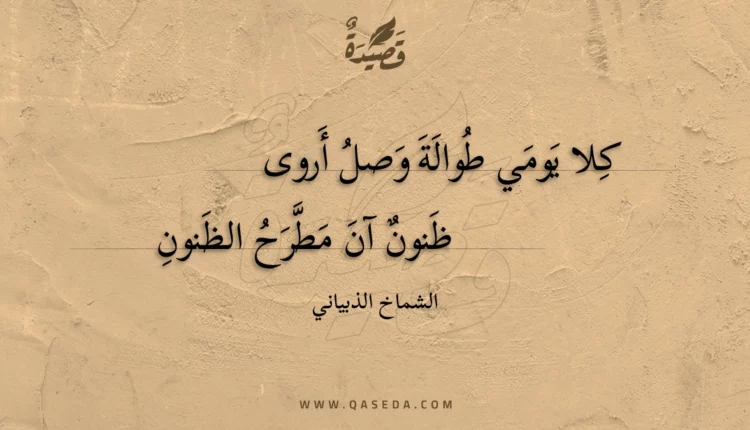 قَصِيْدَةٌ
كِلا يَومَي طُوالَةَ وَصلُ أَروى
ظَنونٌ آنَ مَطَّرَحُ الظَنونِ
الشماخ الذبياني
WWW.QASEDA.COM